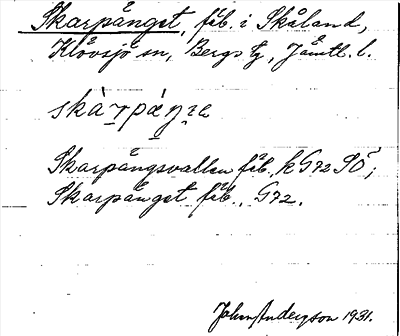 Skarpånget, fäb. i Skåland,
Klövsjö sn, Bergs tg, Jämtl. l.
skàrpáŋꝛe
Skarpångsvallen fäb. k G72 SÖ;
Skarpånget fäb., G72.
John Anderzson 1931.